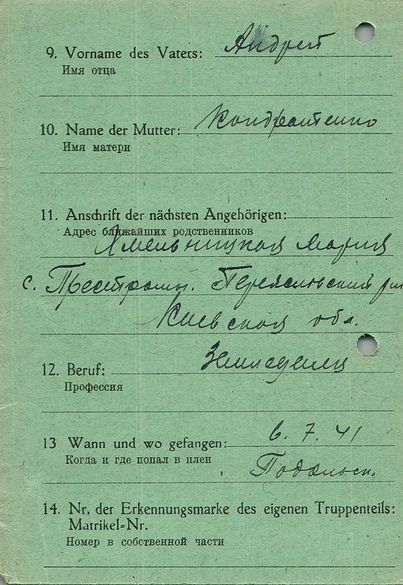 9. Vorname des Vaters: Андрей
Имя отца
10. Name der Mutter: Кондратенко
Имя матери
11. Anschrift der nächsten Angehörigen:
Адрес ближайших родственников
Хмельницкая Мария
с. Переяславский
Киевская обл.
12. Beruf: Земледелец
Профессия
13 Wann und wo gefangen: 6. 7. 41
Когда и где попал в плен
14. Nr. der Erkennungsmarke des eigenen Truppenteils:
Matrikel-Nr.
Номер в собственной части